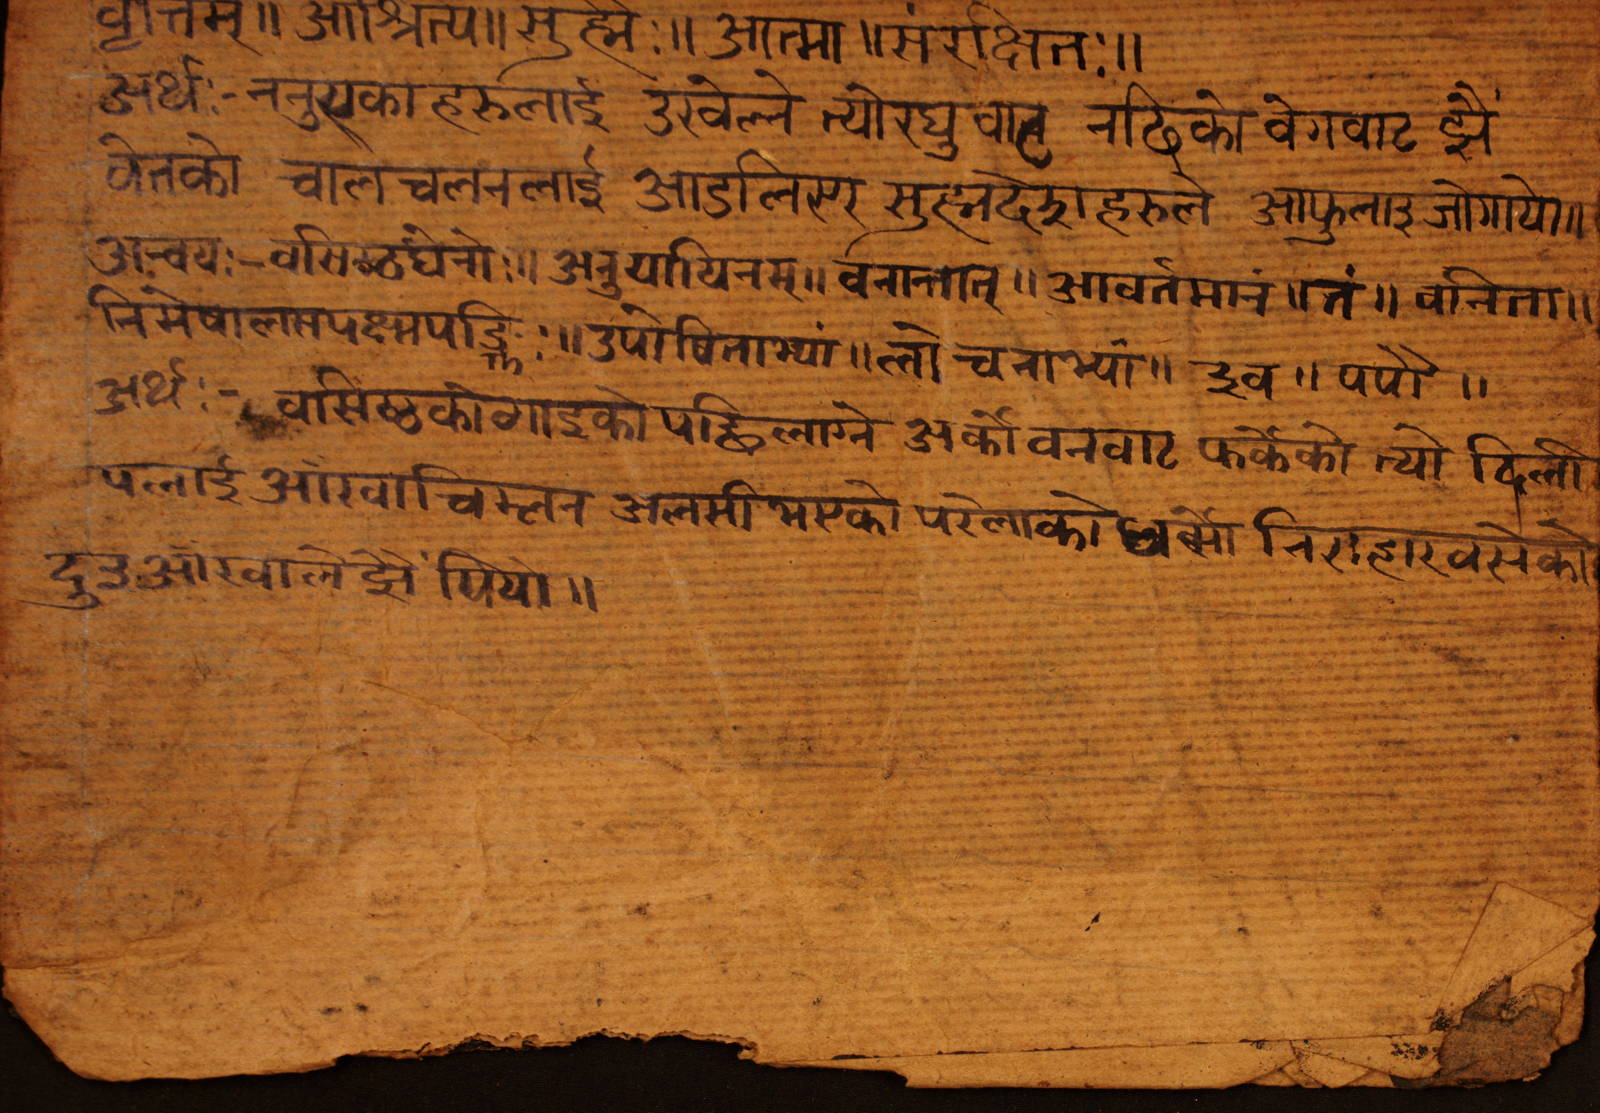 वृत्तिम्॥ आश्रित्य॥ सुह्मैः॥ आत्मा॥ संरक्षितः॥
अर्थः- ननुग्यकाहरुलाई उखेल्ने त्योरघु वाट नदिको वेगवाट झैं
वेतको चालचलनलाई आडलिएर सुह्मदेशहरुले आफुलाइ जोगायो॥
अन्वयः- वसिष्ठधेनोः॥ अनुयायिनम्॥ वनान्तात्॥ आवर्तमानं॥ तं॥ वनिता॥
निमेषालसपक्ष्मपङ्क्तिः॥ उपोषिताभ्यां॥ लोचनाभ्यां॥ इव॥ पपौ॥
अर्थः- वसिष्ठकोगाइको पछिलाग्ने अर्को वनवाट फर्केको त्यो दिली
पलाई आंखाचिम्लन अलसीभएको परेलाको निराहारवसेको
दुइआंखाले झैं पियो॥